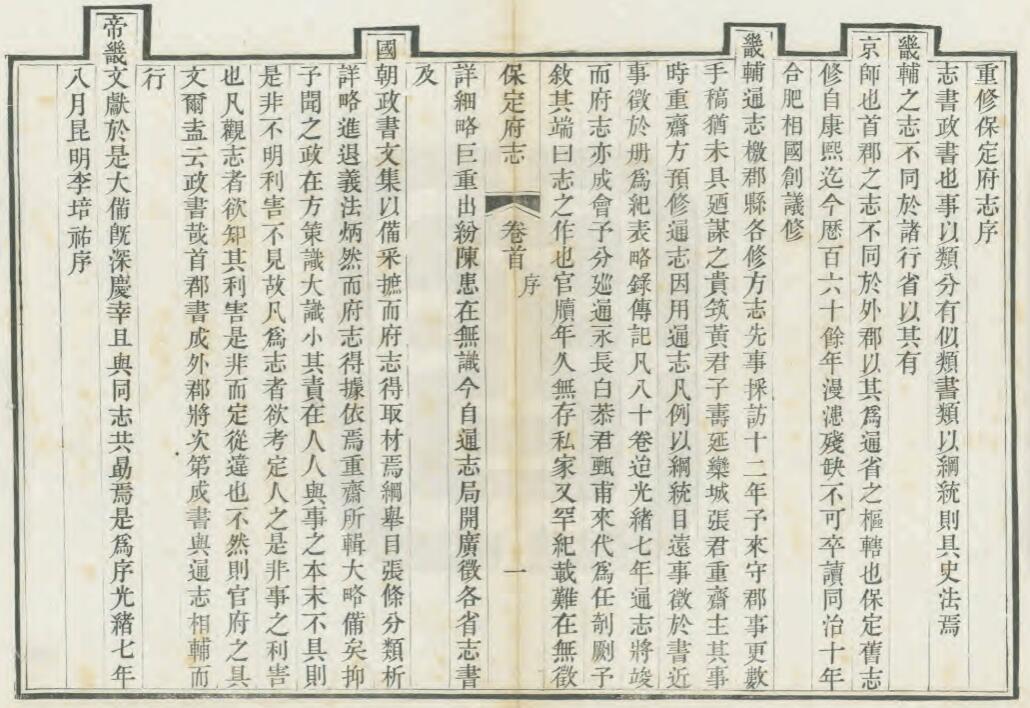 重修保定府志序
志書政書也事以類分有似類書類以綱統則具史法焉
畿輔之志不同於諸行省以其有
京師也首郡之志不同於外郡以其爲通省之樞轄也保定舊志
修自康熙迄今歷百六十餘年漫漶殘缺不可卒讀同治十年
合肥相國創議修
畿輔通志檄郡縣各修方志先事採訪十二年予來守郡事更數
手稿猶未具廼謀之貴筑黃君子壽延欒城張君重齋主其事
時重齋方預修通志因用通志凡例以綱統目遠事徵於書近
事徵於册爲紀表略錄傳記凡八十卷迨光緒七年通志將竣
而府志亦成會予分巡通永長白恭君甄甫來代爲任剞劂予
敘其端曰志之作也官牘年久無存私家又罕紀載難在無徵
保定府志 卷首 序 一
詳細略巨重出紛陳患在無識今自通志局開廣徵各省志書
及
國朝政書文集以備采摭而府志得取材焉綱舉目張條分類析
詳略進退義法炳然而府志得據依焉重齋所輯大略備矣抑
予聞之政在方策識大識小其責在人人與事之本末不具則
是非不明利害不見故凡爲志者欲考定人之是非事之利害
也凡觀志者欲知其利害是非而定從違也不然則官府之具
文爾盍云政書哉首郡書成外郡將次第成書與通志相輔而
行
帝畿文獻於是大備旣深慶幸且與同志共勗焉是爲序光緒七年
八月昆明李培祐序